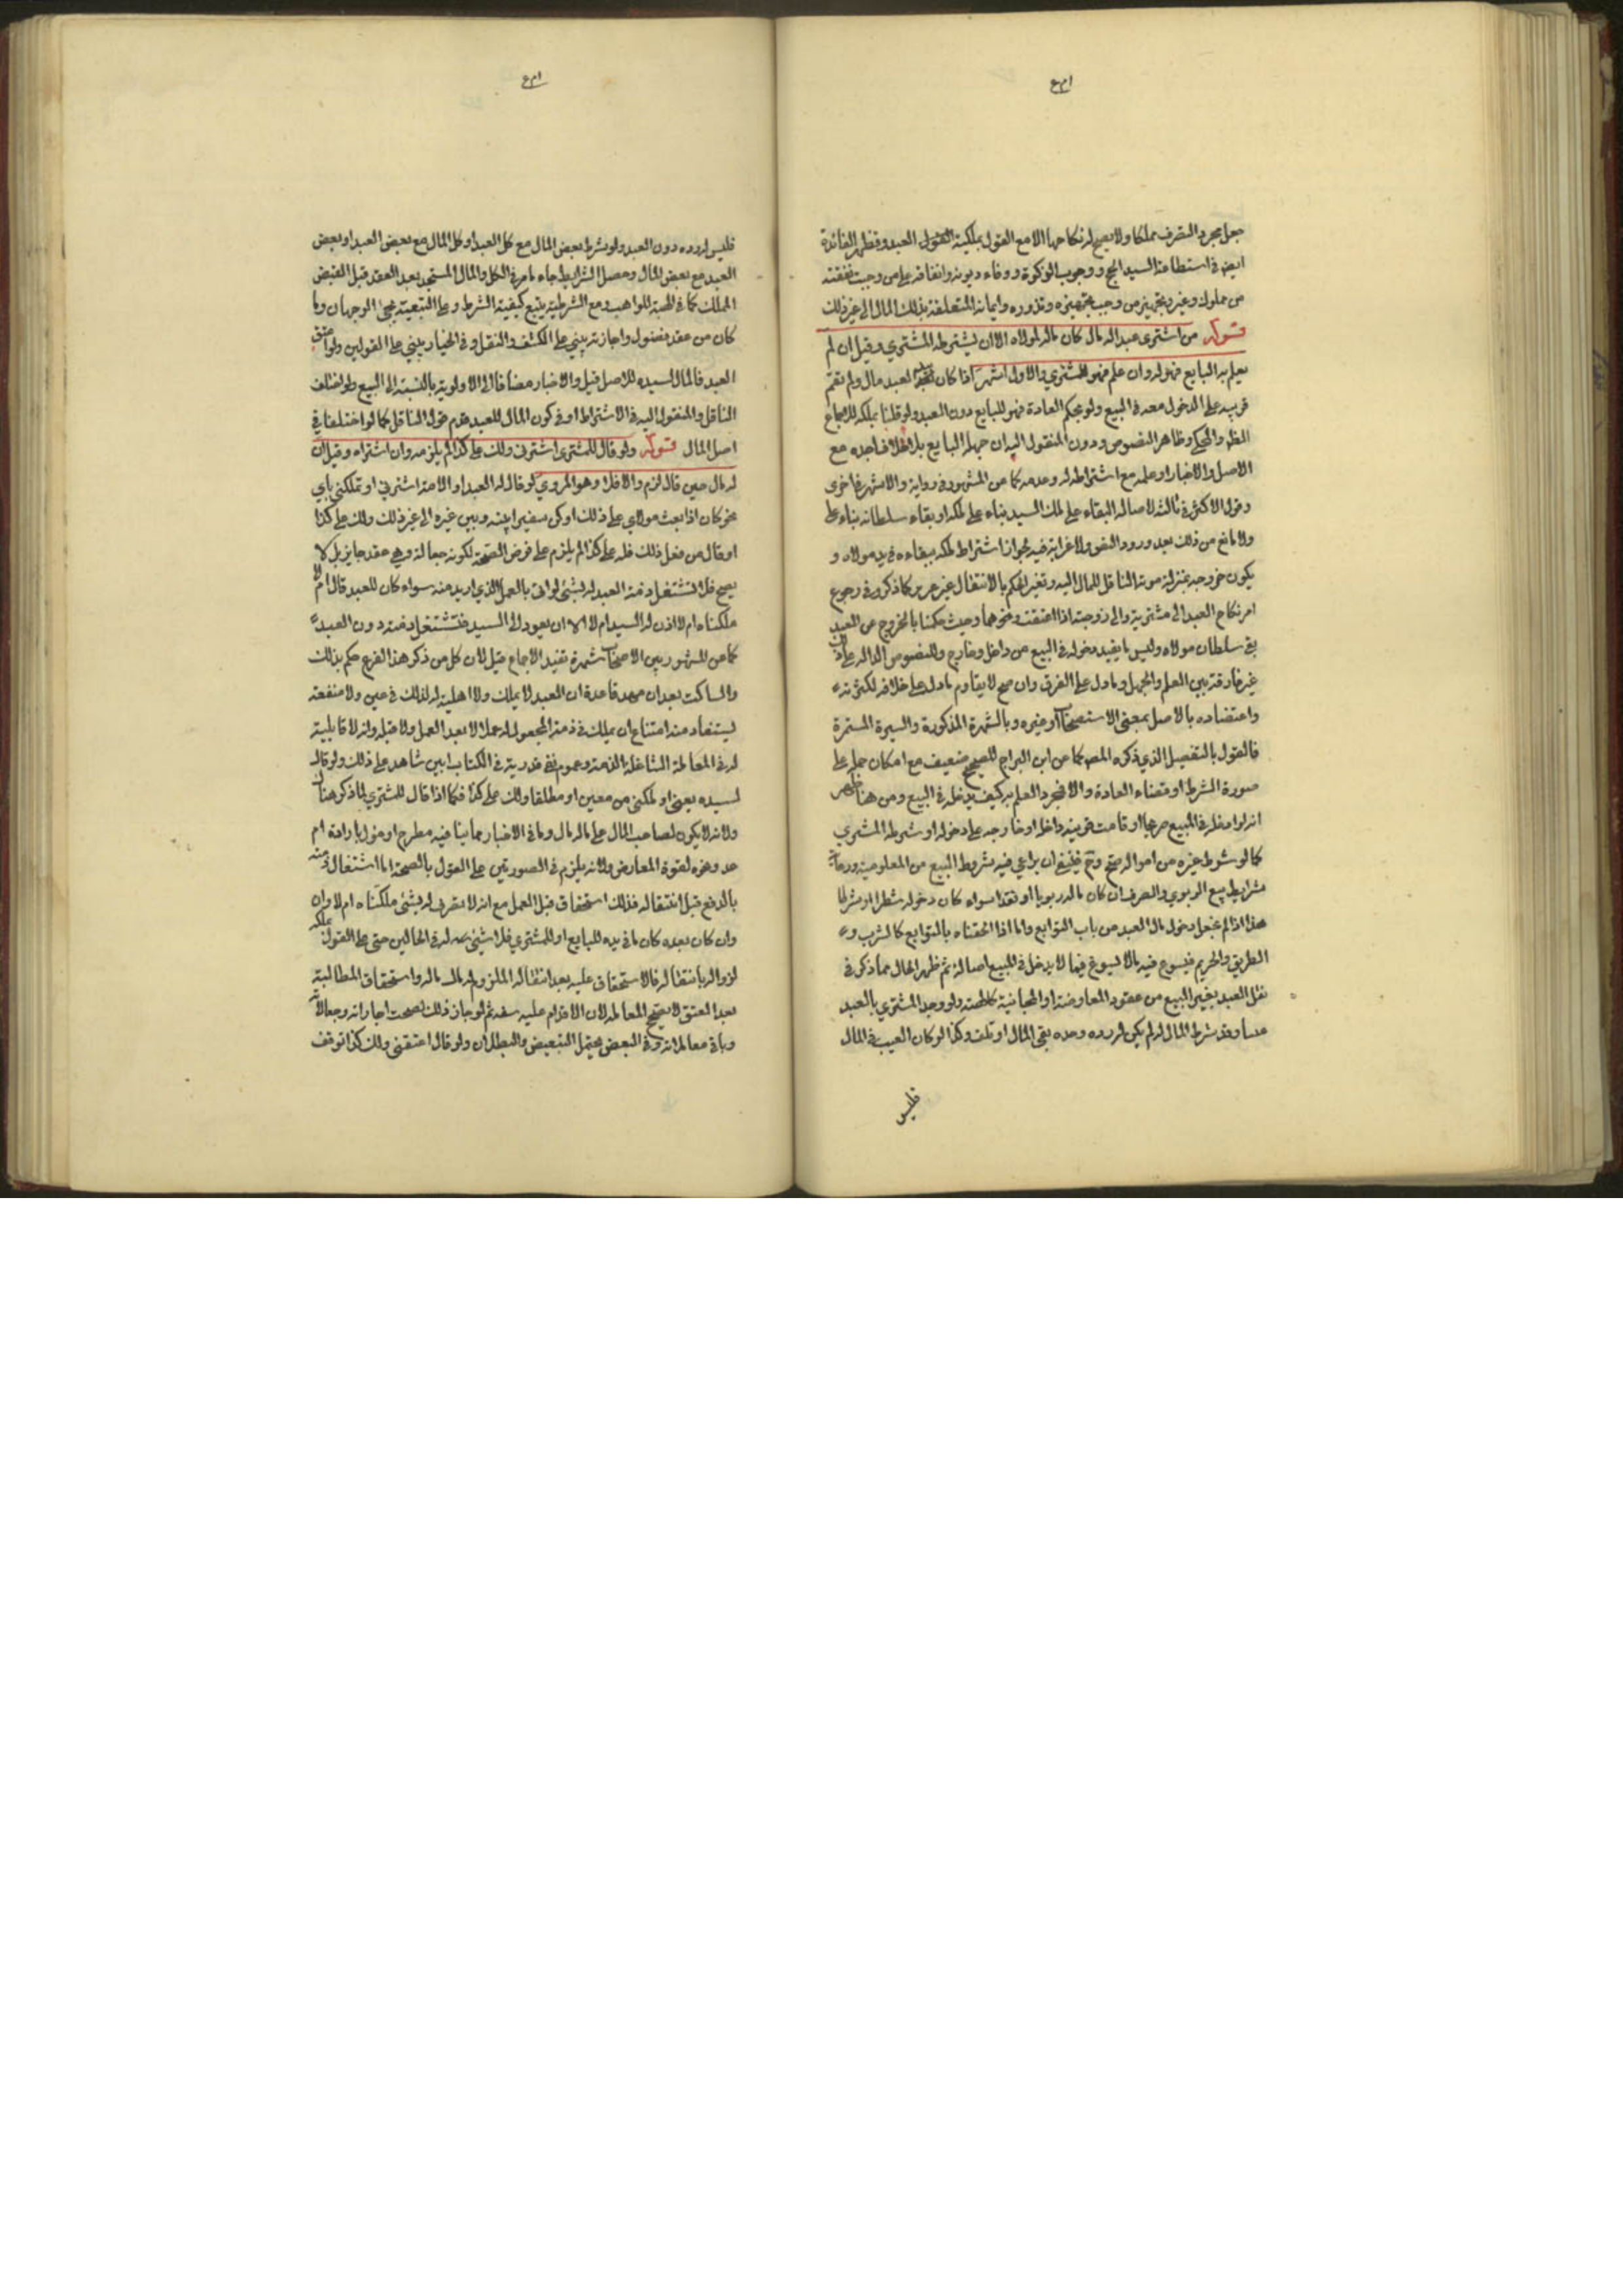 جعل مجرد التصرف مملكا ولا يصح له نكاحها الا مع القول بملكية العبد وتظهر الفائدة
ايضا في استطاعة السيد الحج ووجوب الزكوة ووفاء ديونه وانفاقه على من وجبت نفقته
من مملوك وغيره وتجهيز من وجب تجهيزه ونذوره وايمانه المتعلقة بذلك المال الى غير ذلك
قوله من اشترى عبدا له مال كان ماله لمولاه الا ان يشترطه المشتري وقيل ان لم
يعلم به البايع فهو له وان علم فهو للمشتري والاول اشهر اذا كان للعبد مال ولم تقم
قرينة على الدخول معه في البيع ولو بحكم العادة فهو للبايع دون العبد ولو قلنا بملكه للاجماع
وظاهر النصوص ودون المنقول اليه ان جهله البايع بلا خلاف اجده مع
الاصل والاخبار او علمه مع اشتراطه له وعدمه كما هو المشهور في رواية والاشهر في اخرى
وقول الاكثر في ثالثة لاصالة البقاء على ملك السيد بناء على ملكه او بقاء سلطانه بناء على
ولا مانع من ذلك بعد ورود النص ولا غرابة فيه لجواز اشتراط ملكه ببقاءه في يد مولاه و
يكون خروجه بمنزلة موته الناقل للمال اليه وتغير الحكم بالانتقال غير عزيز كما ذكر في رجوع
امر نكاح العبد الى مشتريه والى زوجته اذا اعتقت ونحوهما وحيث حكمنا بالخروج عن العبد
بقي سلطان مولاه وليس ما يفيد دخوله في البيع من داخل وخارج وللنصوص الدالة على ذلك
غير فارقة بين العلم والجهل وما دل على الفرق وان صح لا يقاوم ما دل على خلافه لكثرته
واعتضاده بالاصل بمعنى الاستصحاب او غيره وبالشهرة المذكورة والسيرة المستمرة
فالقول بالتفصيل الذي ذكره المص كما عن ابن البراج للصحيح ضعيف مع امكان حمله على
صورة الشرط او قضاء العادة والا فمجرد العلم به كيف يدخله في البيع ومن هنا ظهر
انه لو ادخله في المبيع صريحا او قامت قرينة داخلة او خارجة على دخوله او شرطه المشتري
كما لو شرط غيره من امواله صح وح فينبغي ان يراعي فيه شروط البيع من المعلومية ومراعاة
شرايط بيع الربوي والصرف ان كان ماله ربويا او نقدا سواء كان دخوله شطرا او شرطا
هذا اذا لم نجعل دخول مال العبد من باب التوابع واما اذا الحقناه بالتوابع كالشرب و
الطريق والحريم فيسوغ فيه ما لا يسوغ فيما لا يدخل في المبيع اصالة ثم ظهر الحال مما ذكر في
نقل العبد بغير البيع من عقود المعاوضة او المجانية كالهبة ولو وجد المشتري بالعبد
عيبا وقد شرط المال له لم يكن له رده وحده بقي المال او تلف وكذا لو كان العيب في المال
فليس
فليس له رده دون العبد ولو شرط بعض المال مع كل العبد او كل المال مع بعض العبد او بعض
العبد مع بعض المال وحصل الشرايط جاء ما مر في الكل والمال المستجد بعد العقد قبل القبض
المملك كما في الهبة للواهب ومع الشرطية يتبع كيفية الشرط وعلى التبعية يجئ الوجهان وما
كان من عقد فضولي واجازته يبني على الكشف والنقل وفي الخيار يبني على القولين ولو اعتق
العبد فالمال لسيده للاصل قيل والاخبار مضافا الى الاولوية بالنسبة الى البيع ولو اختلف
الناقل والمنقول اليه في الاشتراط او في كون المال للعبد قدم قول الناقل كما لو اختلفا في
اصل المال قوله ولو قال للمشتري اشترني ولك علي كذا لم يلزمه وان اشتراه وقيل ان
له مال حين قال لزم والا فلا وهو المروي لو قال له العبد او الامة اشترني او تملكني باي
نحو كان اذا بعت مولاي على ذلك او كن سفيرا بينه وبين غيره الى غير ذلك ولك علي كذا
او قال من فعل ذلك فله علي كذا لم يلزم على فرض الصحة لكونه جعالة وهي عقد جايز بل لا
يصح فلا تشتغل ذمة العبد له بشئ لو اتى بالعمل الذي اريد منه سواء كان للعبد مال ام لا
ملكناه ام لا اذن له السيد ام لا الا ان يعود الى السيد فتشتغل ذمته دون العبد
كما هو المشهور بين الاصحاب شهرة تفيد الاجماع قيل لان كل من ذكر هذا الفرع حكم بذلك
والساكت بعد ان مهد قاعدة ان العبد لا يملك ولا اهلية له لذلك في عين ولا منفعة
يستفاد منه امتناع ان يملك في ذمته المجعول له جعلا لا بعد العمل ولا قبله ولانه لا قابلية
له في المعاملة الشاغلة الذمة وعموم نفي قدرته في الكتاب ابين شاهد على ذلك ولو قال
لسيده بعني او ملكني من معين او مطلقا ولك علي كذا فكما اذا قال للمشتري لما ذكر هناك
ولانه لا يكون لصاحب المال على ماله مال وما في الاخبار مما ينافيه مطرح او مؤول بارادة ام
عد وغيره لقوة المعارض ولانه يلزم في الصورتين على القول بالصحة اما اشتغال ذمته
بالدفع قبل انتقاله فذلك استحقاق قبل العمل مع انه لا يعرف له شئ ملكناه ام لا وان
وان كان بعده كان ما في يده للبايع او للمشتري فلا شئ له في الحالين حتى على القول بملكه
لزواله بانتقاله فالاستحقاق عليه بعد انتقاله الملزوم له مال ماله واستحقاق المطالبة
بعد العتق لا يصحح المعاملة لان الاقدام عليه سفه ثم لو جاز ذلك لصحت اجاراته وجعالاته
وباقي معاملاته وفي البعض يحتمل التبعيض والبطلان ولو قال اعتقني ولك كذا توقف